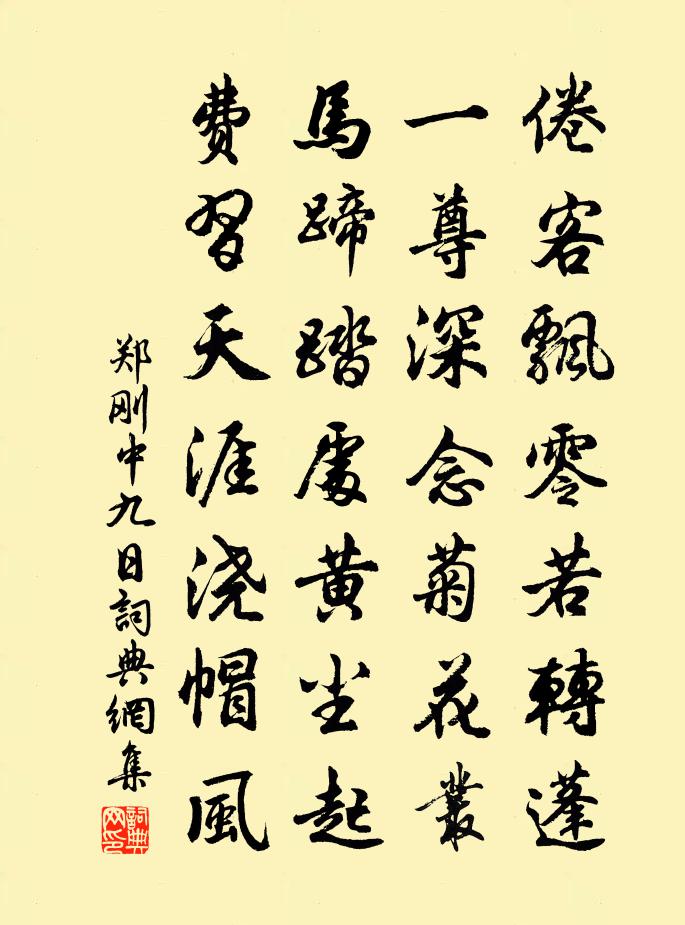 倦客飄零若轉蓬
一尊深念菊花叢
馬蹄踏處黄尘起
費習天涯浇帽風
郑刚中九日詞典網集
詞典网印